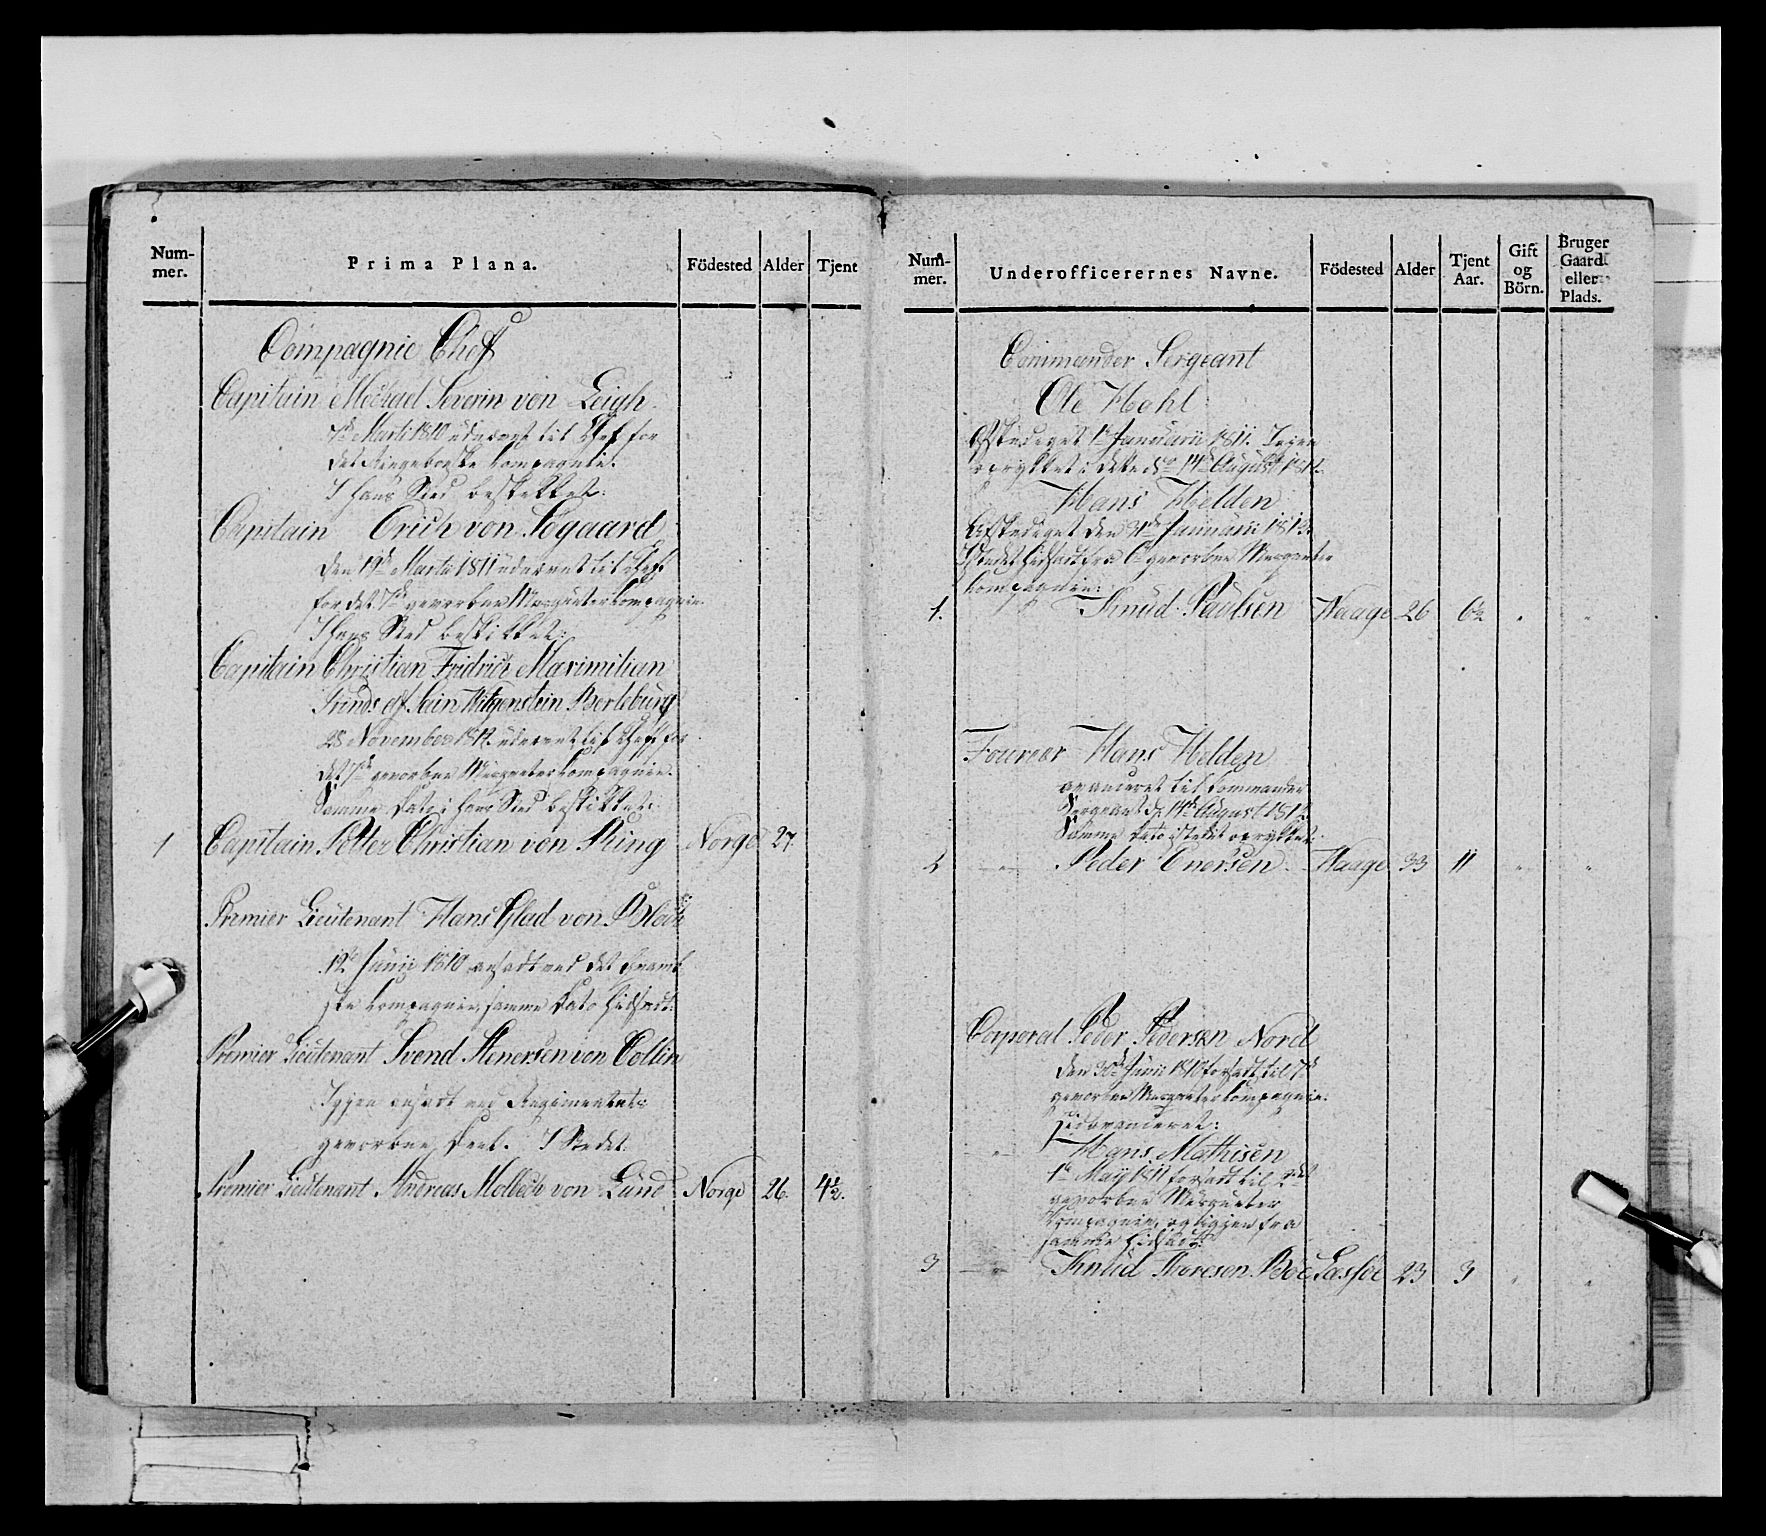 Num-
mer.
Prima Plana.
Födested
Alder
Tjent
Compagnie Chef
Capitain Michael Severin von Leigh
7de Marti 1810 udnevnt til Chef for
det Ringeboeske Compagnie.
I hans Sted beskikket:
Capitain Erich von Sogaard
den 19de Martii 1811 udnevnt til Chef
for det 7de gevorbne Musqueteer Compagnie.
I hans Sted beskikket:
Capitain Christian Fridrich Maximilian
Prinds af Sain Witgenstein Berleburg
28 November 1812 udnevnt til Chef for
det 7de gevorbne Musqueteer Compagnie.
Samme Dato i hans Sted beskikket:
1 Capitain Petter Christian von Ring Norge 27.
Premier Lieutenant Hans Glad von Bloch
12te Junii 1810 ansadt ved det
ske Compagnie, samme Dato hidsadt:
Premier Lieutenant Svend Stenersen von Collin
Igjen ansadt ved Regimentets
gevorbne Deel. I Stedet:
Premier Lieutenant Andreas Molbech von Lund Norge 26. 4½.
Num-
mer.
Underofficerernes Navne.
Födested
Alder
Tjent
Aar.
Gift
og
Börn.
Bruger
Gaard
eller
Plads.
Commandeer Sergeant
Ole Hohl
Afskediget 1te Januarii 1811. Igjen
oprykket i dets Sted 14de August 1812.
Hans Helden
Afskediget den 31de Januarii 1813.
I Stedet hidsadt fra 6te gevorbne Musqueteer
Compagnie:
1. Knud Paulsen Waage 26 6½ " "
Foureer Hans Helden
avanceret til Commandeer
Sergeant d. 14de August 1812
Samme Dato i Stedet oprykket:
2 — " — Peder Enersen Waage 33 11 " "
Corporal Peder Pedersen Nord
den 30te Junii 1810 forsadt til 7de
gevorbne Musqueteer Compagnie.
hidavanceret:
" Hans Mathisen
1te Maji 1811 forsadt til 2det
gevorbne Musqueteer
Compagnie, og igjen fra
samme hidsadt:
3 — " Knud Thoresen Böe Lassöe 23 3 " "